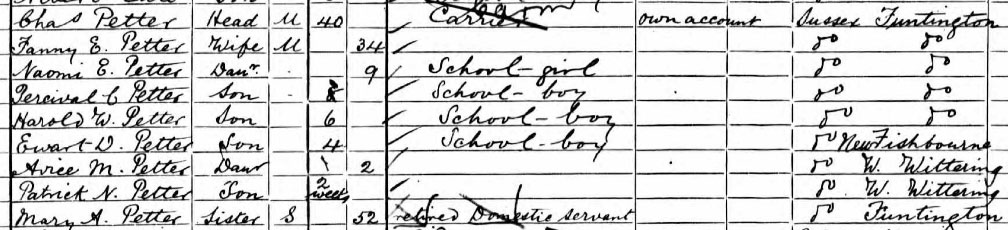 Chas Petter Head M 40 Carrier own account Sussex Funtington
Fanny E. Petter Wife M 34 do do
Naomi E. Petter Daur. 9 School-girl do do
Percival C Petter Son 8 School-boy do do
Harold W. Petter Son 6 School-boy do do
Ewart D. Petter Son 4 School-boy do New Fishbourne
Avice M. Petter Daur 2 do W. Wittering
Patrick N. Petter Son 2 weeks do W. Wittering
Mary A. Petter Sister S 52 retired Domestic Servant do Funtington